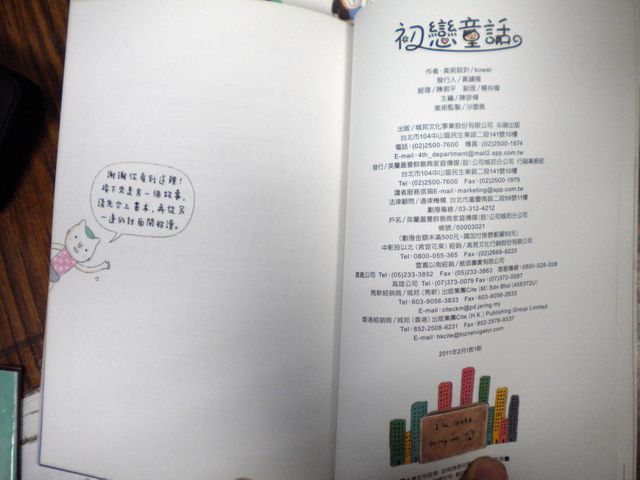 謝謝你看到這裡!
接下來是另一個故事,
請先合上書本,再從另
一邊的封面開始讀。
初戀童話。
作者.美術設計/kowei
發行人/黃鎮隆
經理/陳君平 副理/楊仲偉
主編/陳彥樺
美術監製/沙雲佩
出版/城邦文化事業股份有限公司 尖端出版
台北市104中山區民生東路二段141號10樓
電話:(02)2500-7600 傳真:(02)2500-1974
E-mail:4th_department@mail2.spp.com.tw
發行/英屬蓋曼群島商家庭傳媒(股)公司城邦分公司 行銷業務部
台北市104中山區民生東路二段141號10樓
Tel:(02)2500-7600 Fax:(02)2500-1979
讀者服務信箱E-mail:marketing@spp.com.tw
法律顧問/通律機構 台北市重慶南路二段59號11樓
劃撥專線/03-312-4212
戶名/英屬蓋曼群島商家庭傳媒(股)公司城邦分公司
帳號/50003021
(劃撥金額未滿500元,請加付掛號郵資50元)
中彰投以北(含宜花東)經銷/高見文化行銷股份有限公司
Tel:0800-055-365 Fax:(02)2668-6220
雲嘉以南經銷/威信圖書有限公司
嘉義公司 Tel:(05)233-3852 Fax:(05)233-3863 客服專線:0800-028-028
高雄公司 Tel:(07)373-0079 Fax:(07)373-0087
馬新經銷商/城邦(馬新)出版集團Cite (M) Sdn Bhd (458372U)
Tel:603-9056-3833 Fax:603-9056-2833
E-mail:citeckm@pd.jaring.my
香港經銷商/城邦(香港)出版集團Cite (H.K.) Publishing Group Limited
Tel:852-2508-6231 Fax:852-2578-9337
E-mail:hkcite@biznetvigator.com
2011年2月1版1刷
i'm cute.